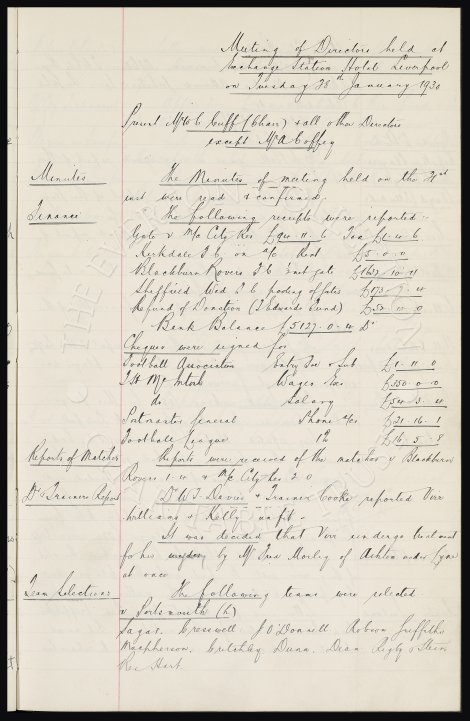 Meeting of Directors held at
Exchange Station Hotel Liverpool
on Tuesday 28th January 1930
Present Mr W C Cuff (Chair) & all other Directors
except Mr A Coffey
Minutes The Minutes of meeting held on the 21st
inst were read & confirmed.
Finance The following receipts were reported:-
Gate v M/c City Res £94-11-6 Tax £6-4-6
Kirkdale F.C. on a/c Rent £5-0-0
Blackburn Rovers F.C. gate £1633-10-11
Sheffield Wed F.C. pooling of gates £173-7-4
Refund of Donation (J Edwards Fund) £50-0-0
Bank Balance £5137-0-4 Dr
Cheques were signed for
Football Association Entry Fee & Sub £1-11-0
T.H. McIntosh Wages &c £350-0-0
do Salary £54-3-4
Postmaster General Phone a/c £21-16-1
Football League 1% £16-5-8
Reports of Matches Reports were received of the matches v Blackburn
Rovers 1-4 & M/c City Res 2-0
Dr & Trainers Report Dr W.J. Davies & Trainer Cooke reported Verr
Williams & Kelly unfit.
It was decided that Verr undergo treatment
for his by Mr Morley of Ashton under Lyne
at once
Team Selections The following teams were selected
v Portsmouth (h)
Sagar, Cresswell J O'Donnell, Robson Griffiths
Macpherson, Critchley Dunn, Dean Rigby & Stein
Res Hart